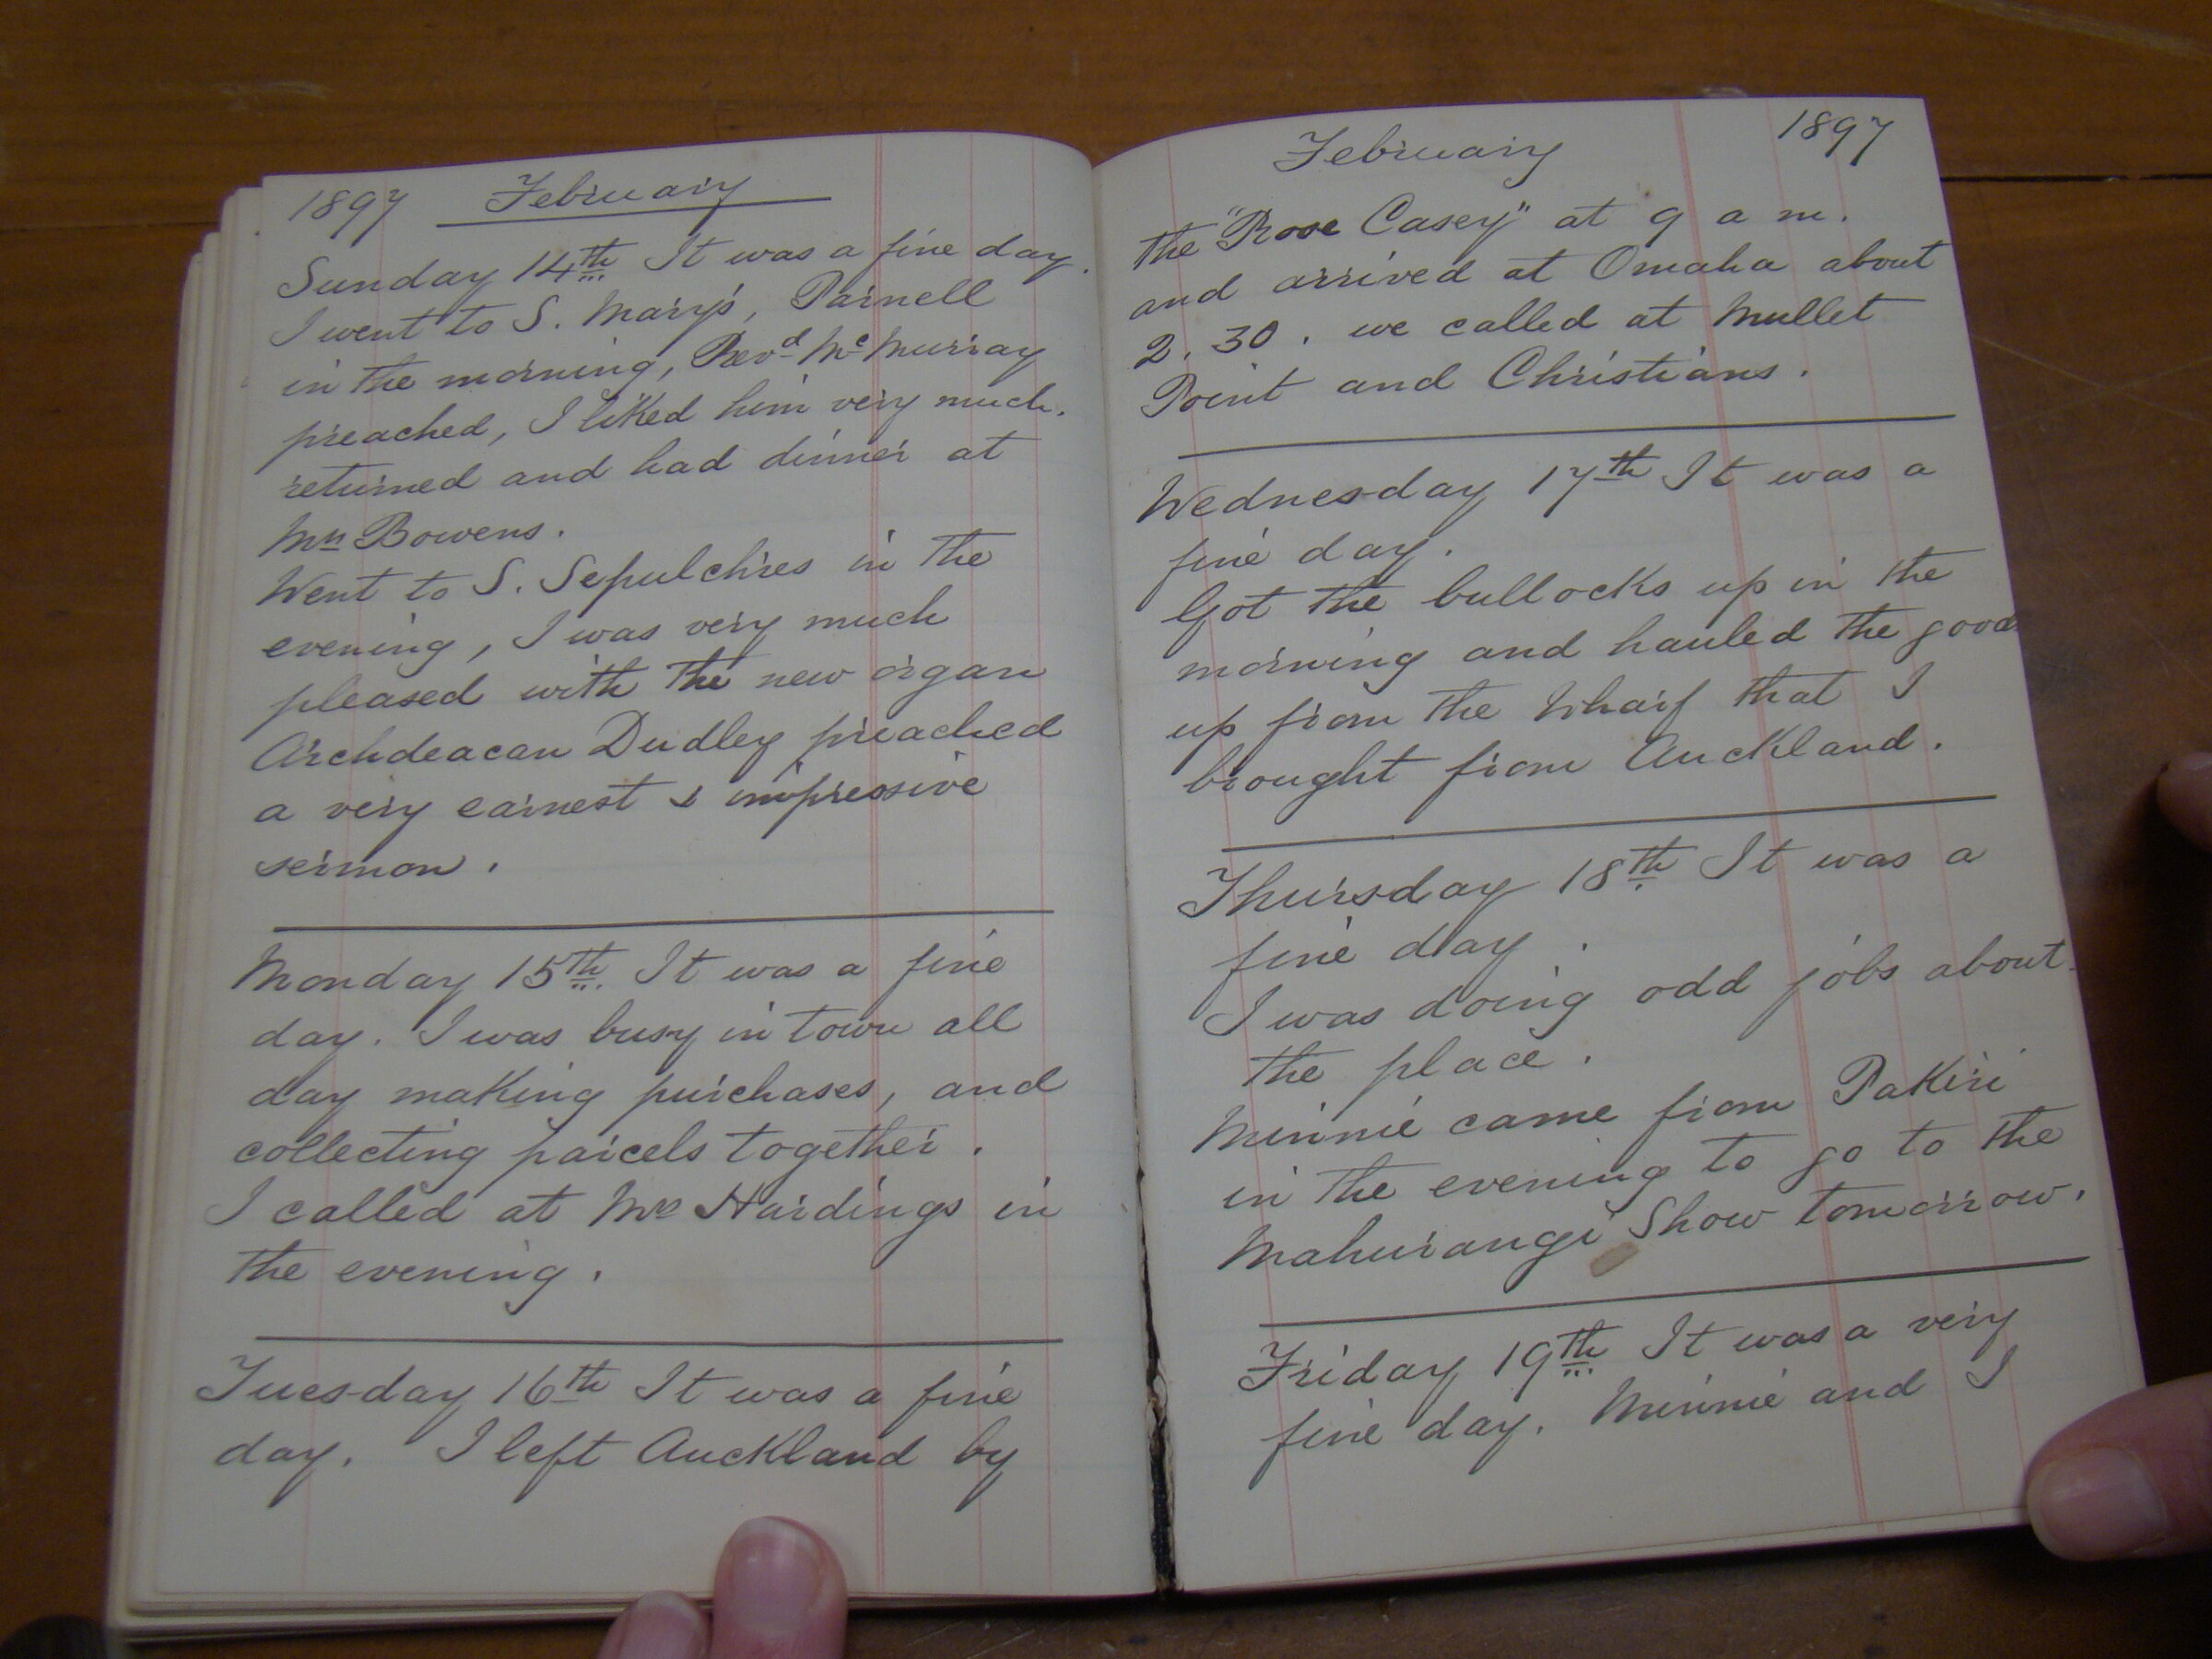 1897 February
Sunday 14th It was a fine day.
I went to S. Mary's, Parnell
in the morning, Revd Mc Murray
preached, I liked him very much.
returned and had dinner at
Mrs Bowens.
Went to S. Sepulchres in the
evening, I was very much
pleased with the new organ
Archdeacan Dudley preached
a very earnest & impressive
sermon.
Monday 15th. It was a fine
day. I was busy in town all
day making purchases, and
collecting parcels together.
I called at Mrs Hardings in
the evening.
Tuesday 16th It was a fine
day. I left Auckland by
February 1897
the "Rose Casey" at 9 a m.
and arrived at Omaha about
2.30. we called at Mullet
Point and Christians.
Wednesday 17th It was a
fine day.
Got the bullocks up in the
morning and hauled the goods
up from the Wharf that I
brought from Auckland.
Thursday 18th It was a
fine day.
I was doing odd jobs about
the place.
Minnie came from Pakiri
in the evening to go to the
Mahurangi Show tomorrow.
Friday 19th It was a very
fine day. Minnie and I